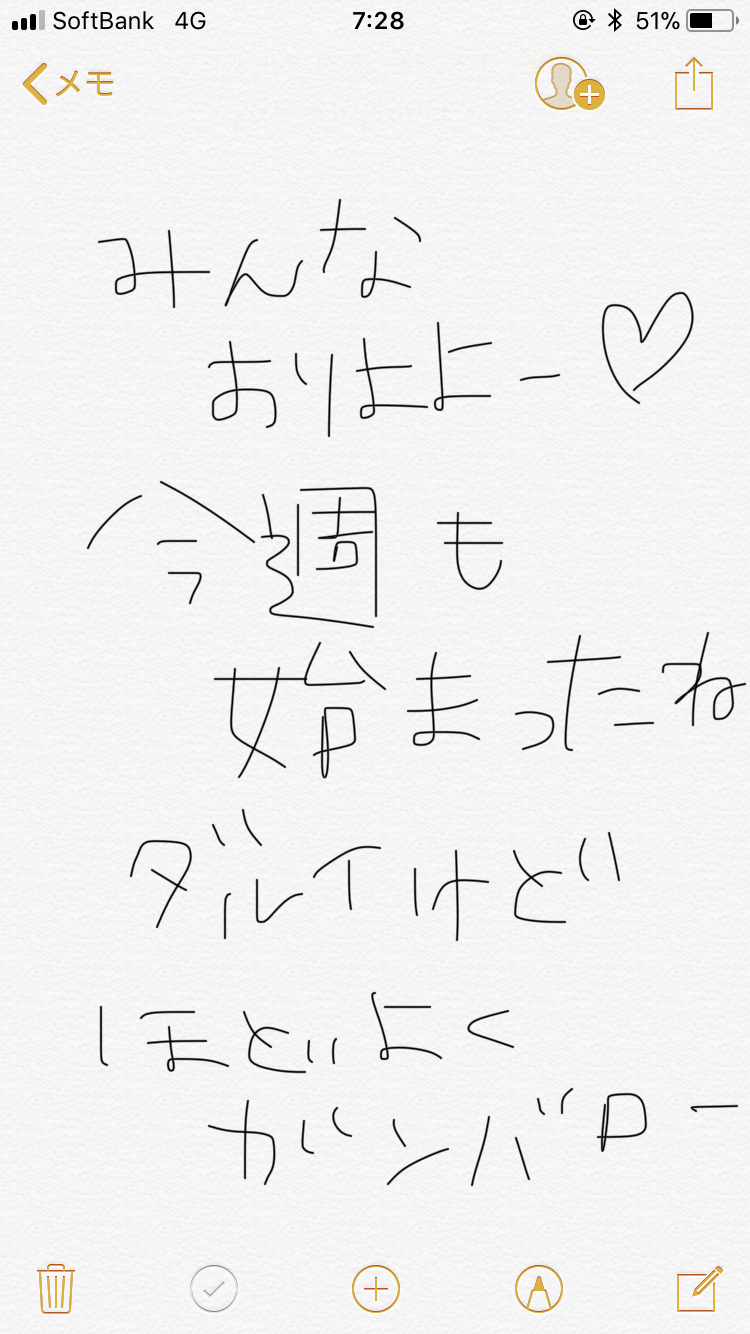 SoftBank 4G 7:28 51%
メモ
みんな
おりはよー♡
今週も
始まったね
ダルイけど
ほどよく
ガンバロー